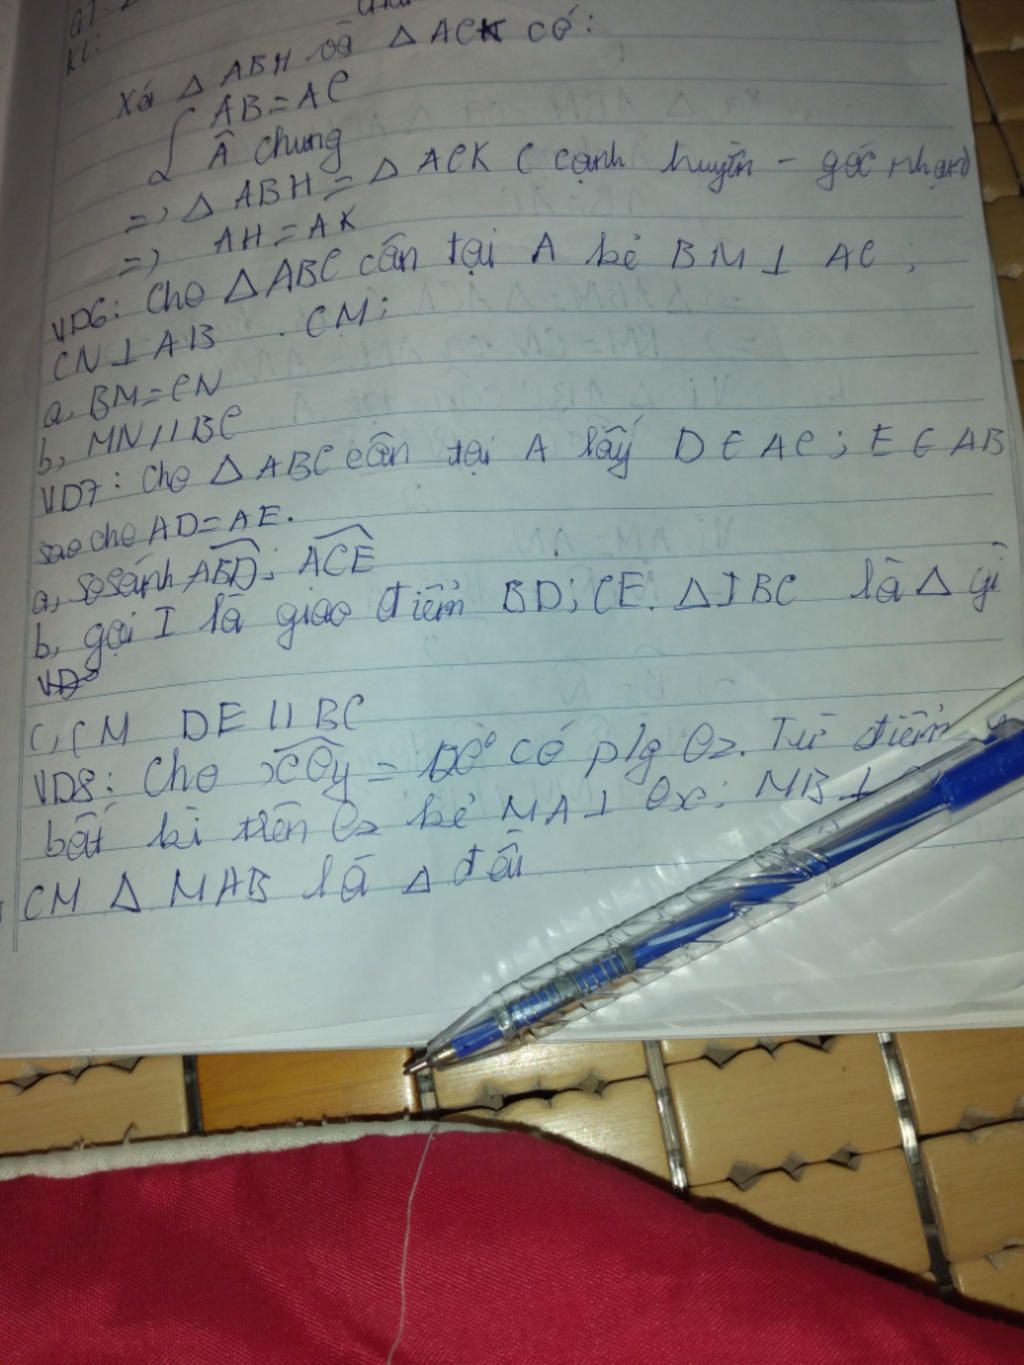 GT:
KL:
Xét △ ABH và △ ACK có:
AB = AC
Â chung
=> △ ABH = △ ACK (cạnh huyền - góc nhọn)
=> AH = AK
VD6: Cho △ABC cân tại A kẻ BM ⊥ AC ;
CN ⊥ AB . CM:
a, BM = CN
b, MN // BC
VD7: Cho △ ABC cân tại A lấy D ∈ AC ; E ∈ AB
sao cho AD = AE.
a, So sánh ABD ; ACE
b, gọi I là giao điểm BD ; CE. △ IBC là △ gì
VD
C, CM DE // BC
VD8: Cho xOy = có p/g Oz. Từ điểm
bất kì trên Oz kẻ MA ⊥ Ox ; MB ⊥
CM △ MAB là △ đều